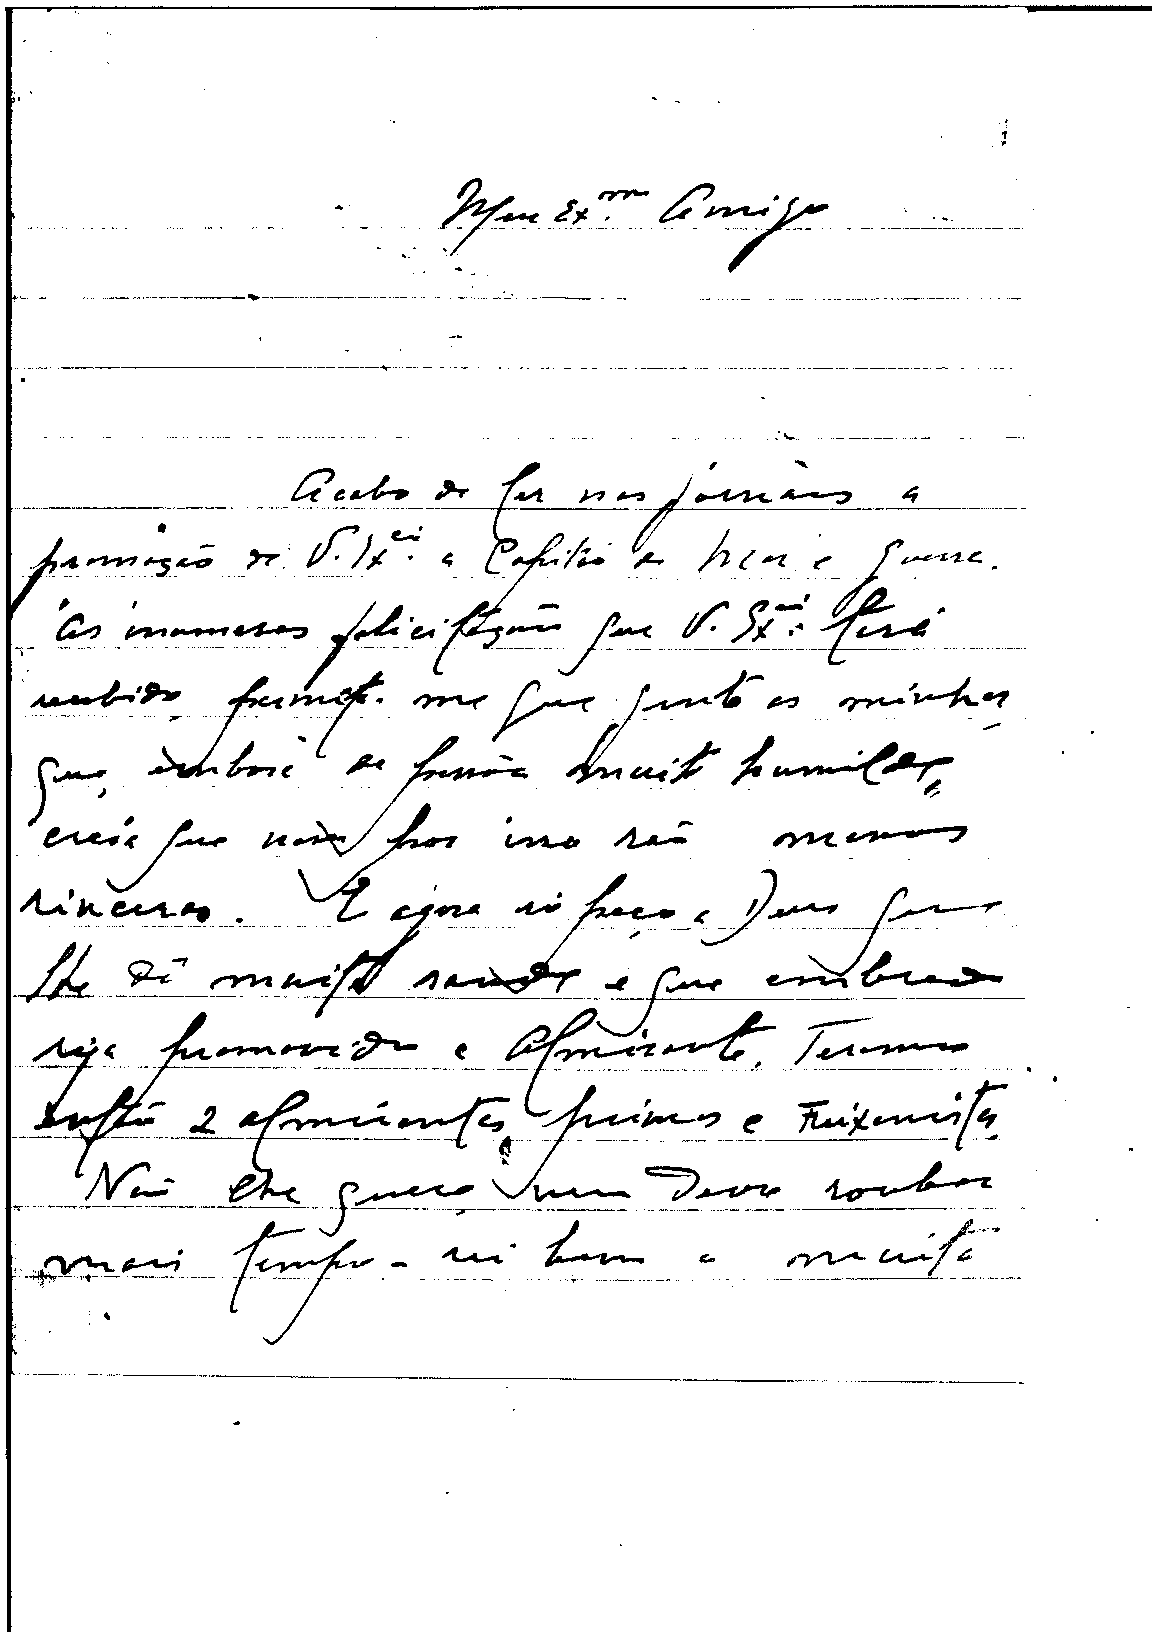 Meu Exmo. Amigo
Acabo de ler nos jornais a
promoção de V. Excia. a Capitão de Mar e Guerra.
Às inumeras felicitações que V. Excia. terá
recebido permita-me que junte as minhas
que, embora de pessôa muito humilde,
creia que nem por isso são menos
sinceras. E agora só peço a Deus que
lhe dê muita saude e que embreve
seja promovido a Almirante. Teremos
então 2 almirantes, primos e
Não lhe quero, nem devo roubar
mais tempo - sei bem a muita